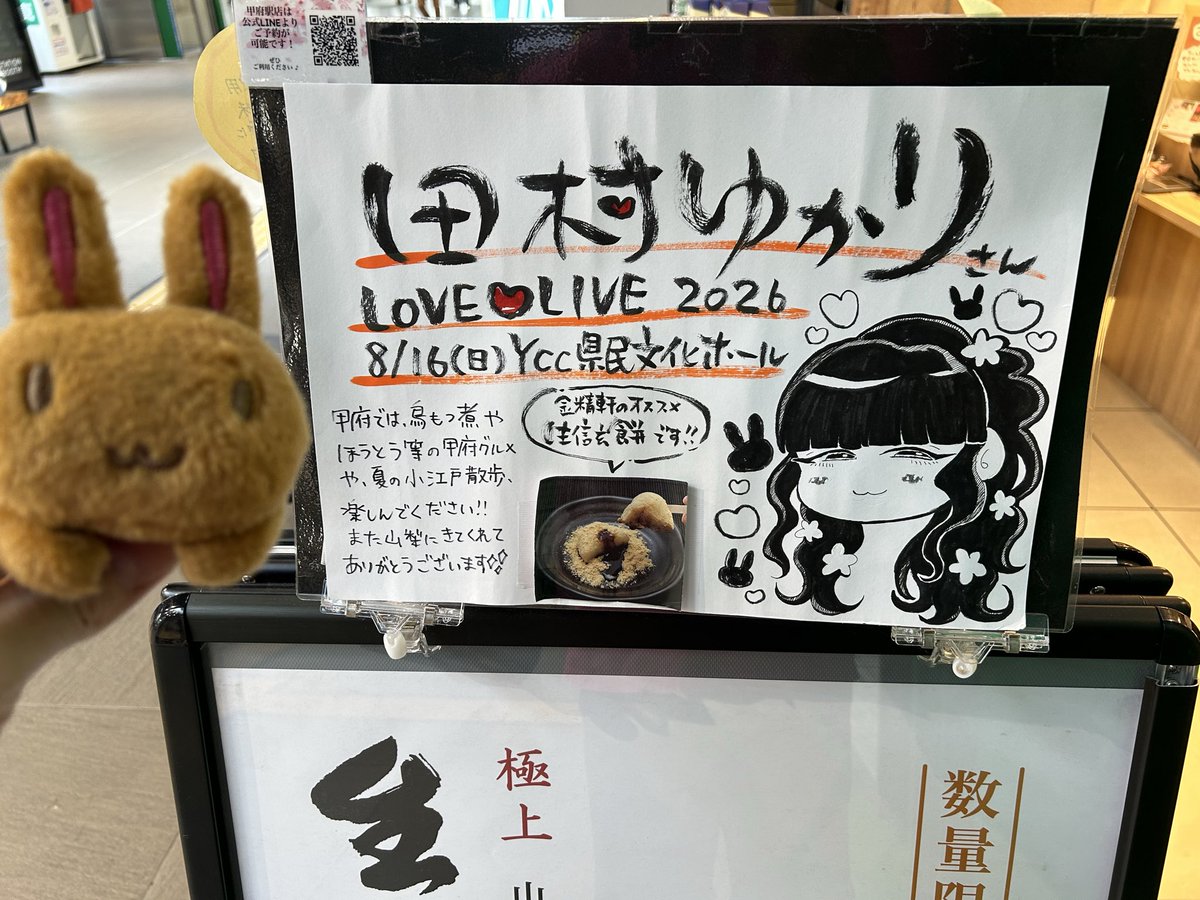 甲府駅店は
公式LINEより
ご予約が
可能です！
ぜひ
ご利用ください♪
田村ゆかりさん
LOVE♥LIVE 2026
8/16(日)Ycc県民文化ホール
甲府では、鳥もつ煮や
ほうとう等の甲府グルメ
や、夏の小江戸散歩、
楽しんでください!!
また山梨にきてくれて
ありがとうございます
金精軒のオススメ
生信玄餅です!!
極上
数量限